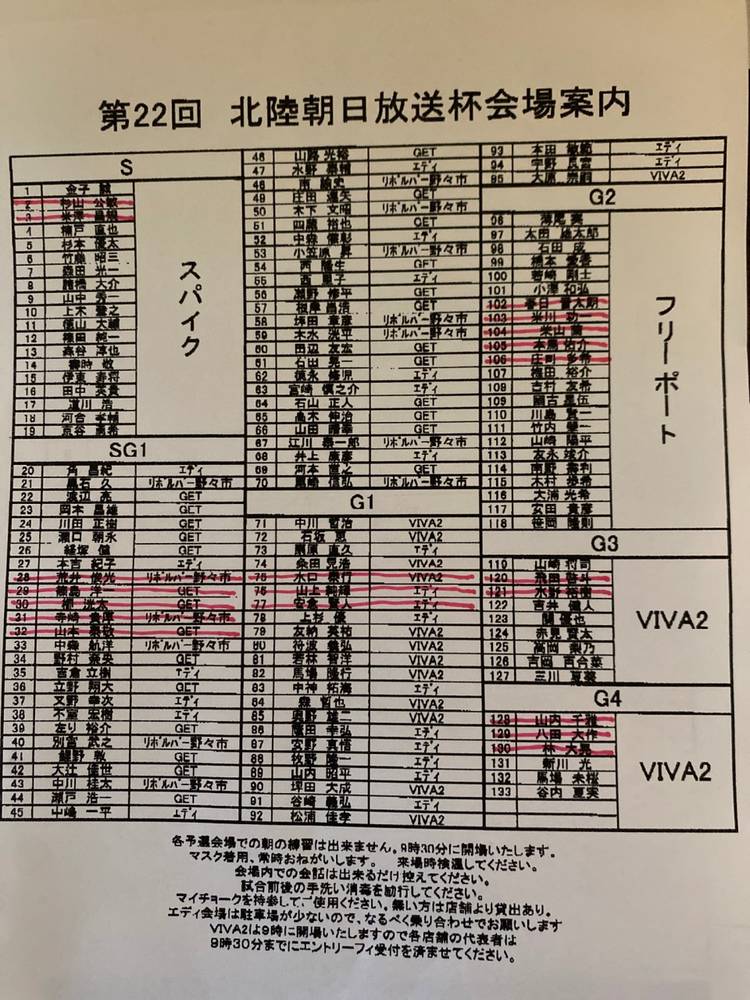 第22回 北陸朝日放送杯会場案内
S
1 金子
2 杉山 公敏
3 米澤
4 直也
5 杉本 優太
6 竹藤 昭三
7 森田 光一
8 大介
9 山中 秀一
10 上木
11 徳山 大
12 純一
13 森谷 淳也
14 敬
15 伊東 寿将
16 田中 英貴
17 道川 浩
18 河合
19 京谷 勇希
スパイク
SG1
20 角 昌紀 エディ
21 黒石 久 リボルバー野々市
22 渡辺 亮 GET
23 岡本 昌雄 GET
24 川田 正樹 GET
25 瀬口 朝永 GET
26 経塚 健 GET
27 本吉 紀子 エディ
28 荒井 俊光 リボルバー野々市
29 洋一 GET
30 柳 洸太 GET
31 寺崎 リボルバー野々市
32 山本 泰敬 GET
33 中森 航洋 リボルバー野々市
34 野村 奈央 GET
35 吉倉 立樹 エディ
36 立野 翔大 GET
37 又野 幸次 エディ
38 不室 宏樹 エディ
39 左り 裕介 GET
40 別宮 武之 リボルバー野々市
41 鯉野 敦 GET
42 大辻 佳世 GET
43 中川 桂太 リボルバー野々市
44 瀬戸 浩一 GET
45 中嶋 一平 エディ
46 山路 光裕 GET
47 水野 エディ
48 南 リボルバー野々市
49 庄田 GET
50 木下 文昭 リボルバー野々市
51 四 裕也 GET
52 中森 エディ
53 小笠原 昇 リボルバー野々市
54 西 隆生 GET
55 西 里子 エディ
56 瀬野 修平 GET
57 昌清 GET
58 坪田 章彦 リボルバー野々市
59 木水 洸平 リボルバー野々市
60 田辺 友宏 GET
61 石出 晃一 GET
62 徳永 修児 エディ
63 宮崎 慎之介 エディ
64 石山 正人 GET
65 高木 伸治 GET
66 山田 晴幸 GET
67 江川 泰一郎 リボルバー野々市
68 井上 康彦 エディ
69 河本 直之 GET
70 黒崎 信弘 リボルバー野々市
G1
71 中川 哲治 VIVA2
72 石坂 恵 VIVA2
73 原 直久 エディ
74 粂田 兄浩 VIVA2
75 水口 泰行 VIVA2
76 山上 純輝 エディ
77 安倉 寛人 エディ
78 上杉 優 エディ
79 友納 英祐 VIVA2
80 符波 義弘 VIVA2
81 若林 智洋 VIVA2
82 馬場 隆行 VIVA2
83 中神 拓海 エディ
84 森 哲也 VIVA2
85 奥野 雄二 VIVA2
86 窪田 幸弘 エディ
87 安野 真悟 エディ
88 牧野 隆一 エディ
89 山内 昭平 エディ
90 坪田 大成 VIVA2
91 谷崎 義弘 エディ
92 松浦 佳孝 VIVA2
93 本田 敏範 エディ
94 宇野 真宮 エディ
95 大原 崇嗣 VIVA2
G2
96 薄尾 実
97 太田 雄太郎
98 石田 成
99 橋本 愛香
100 若崎 剛士
101 小澤 和弘
102 春日 貴太朗
103 米川 功一
104 米山 薗
105 本馬 佑介
106 庄司 多希
107 権田 裕介
108 吉村 友希
109 國古 星伍
110 川島 賢二
111 竹内 栄一
112 山崎 陽平
113 友永 竣介
114 南野 壽利
115 木村 歩希
116 大浦 光希
117 安田 貴彦
118 笹岡 隆則
フリーポート
G3
119 山崎 将司
120 飛田 啓斗
121 水野 裕樹
122 吉井 健人
123 関 優也
124 赤見 賢太
125 高岡 梨乃
126 吉岡 百合菜
127 三川 夏菜
VIVA2
G4
128 山内 千雅
129 八田 大作
130 林 大晃
131 新川 光
132 馬場 未桜
133 谷内 夏実
VIVA2
各予選会場での朝の練習は出来ません。9時30分に開場いたします。
マスク着用、常時おねがいします。 来場時検温してください。
会場内での会話は出来るだけ控えてください。
試合前後の手洗い消毒を励行してください。
マイチョークを持参してご使用ください。無い方は店舗より貸出あり。
エディ会場は駐車場が少ないので、なるべく乗り合わせでお願いします
VIVA2は9時に開場いたしますので各店舗の代表者は
9時30分までにエントリーフィ受付を済ませてください。